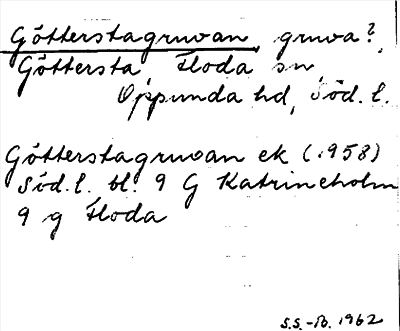 Götterstagruvan, gruva?,
Göttersta, Floda sn,
Oppunda hd, Söd. l.
Götterstagruvan ek (1958)
Söd. l. bl. 9 G Katrineholm
9 g Floda
S.S.-B. 1962